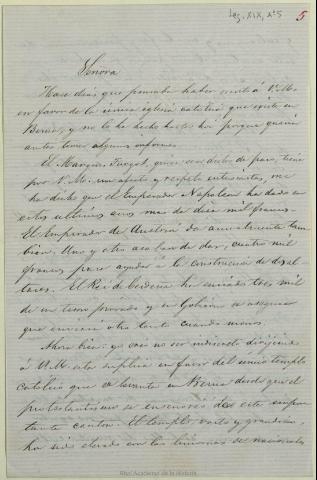 Leg. XIX, nº 5
5
Señora
Hace dias que pensaba haber escrito á V. M.
en favor de la unica iglesia catolica que existe en
Berna, y no lo he hecho hasta hoi porque queria
antes tener algunos informes.
El Marques Turgot, quien sea dicho de paso, tiene
por V. M. un afecto y respeto entusiastas, me
ha dicho que el Emperador Napoleon ha dado en
estos ultimos años mas de diez mil francos.
El Emperador de Austria da anualmente tam
bien. Uno y otro acaban de dar, cuatro mil
francos para ayudar á la construccion de dos al-
tares. El Rei de Cerdeña ha enviado tres mil
de un tesoro privado y su Gobierno se asegura
que enviara otro tanto cuando menos.
Ahora bien: yo creo no ser indiscreto dirigiendo
á V. M. esta suplica en favor del unico templo
catolico que se levanta en Berna desde que el
protestantismo se enseñoreó de este impor
tante canton. El templo, vasto y grandioso,
ha sido elevado con las limosnas de nacionales
Real Academia de la Historia